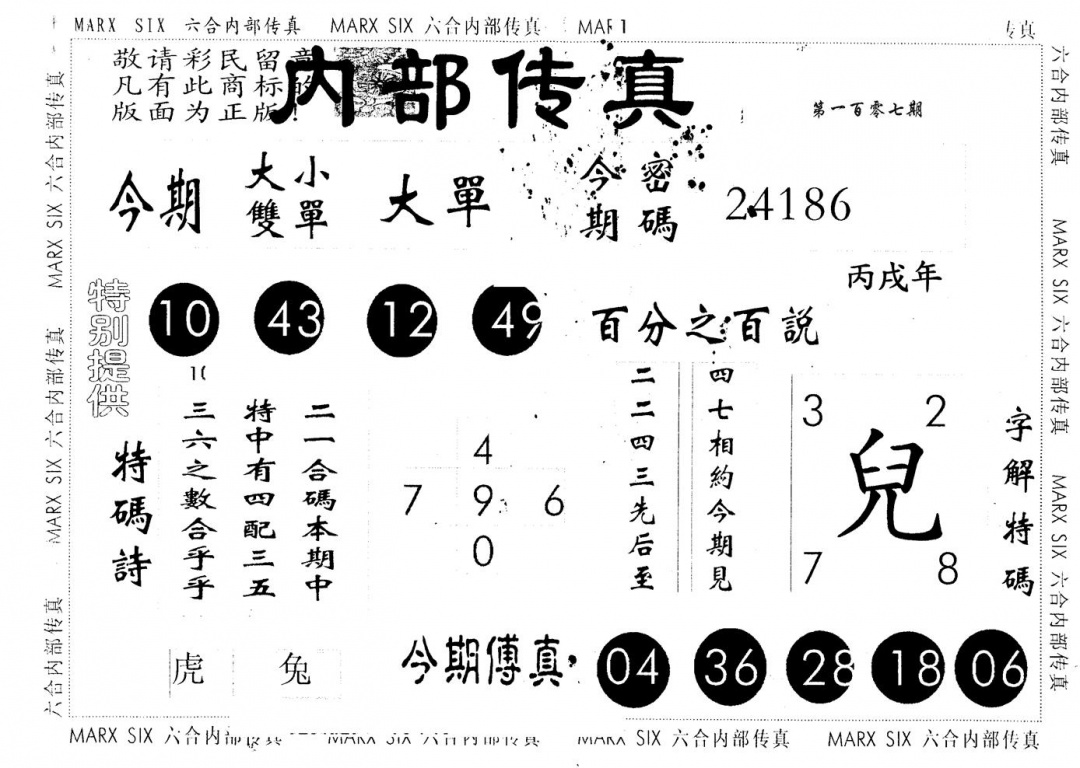 MARX SIX 六合内部传真 MARX SIX 六合内部传真 MAR 1 传真
敬请彩民留意
凡有此商标的
版面为正版!
内部传真
第一百零七期
今期
大小
雙單
大單
今期
密碼
24186
丙戌年
特别提供
10 43 12 49
百分之百説
特碼詩
三六之數合乎乎
特中有四配三五
二一合碼本期中
4
7 9 6
0
二二四三先后至
四七相約今期見
3 2
兒
7 8
字解特碼
虎 兔
今期傳真
04 36 28 18 06
六合内部传真 MARX SIX 六合内部传真 MARX SIX 六合内部传真
六合内部传真 MARX SIX 六合内部传真 MARX SIX 六合内部传真
MARX SIX 六合内部传真 MARX SIX 六合内部传真 MARX SIX 六合内部传真 MARX SIX 六合内部传真